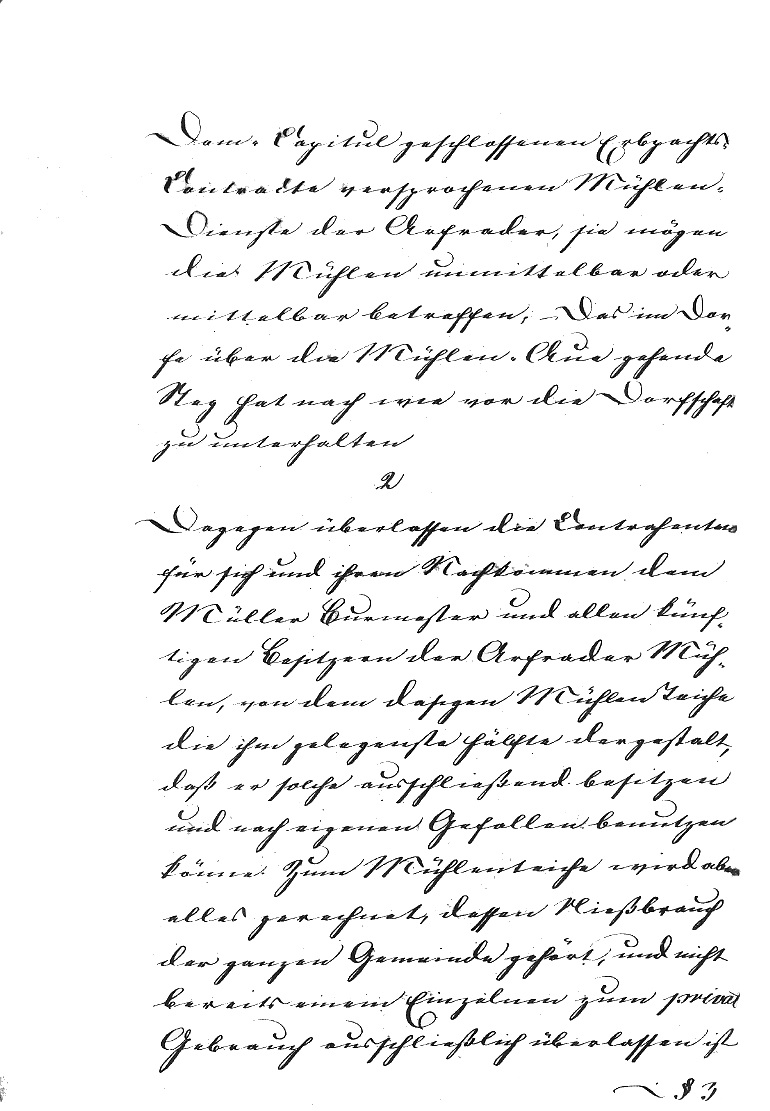 Dom-Capitul geschlossenen Erbpachts-
Contracte versprochenen Mühlen-
Dienste der Arfrader, sie mögen
die Mühlen unmittelbar oder
mittelbar betreffen, Das im Dor-
fe über die Mühlen-Aue gehende
Steg hat nach wie vor die Dorfschaft
zu unterhalten
2
Dagegen überlassen die Contrahenten
für sich und ihren Nachkommen dem
Müller Burmester und allen künf-
tigen Besitzern der Arfrader Müh-
len, von dem dasigen Mühlen Teiche
die ihm gelegenste Hälfte dergestalt,
daß er solche ausschließend besitzen
und nach eigenen Gefallen benutzen
könne. Zum Mühlenteiche wird aber
alles gerechnet, dessen Nießbrauch
der ganzen Gemeinde gehört, und nicht
bereits einem Einzelnen zum privat
Gebrauch ausschließlich überlassen ist
§ 3